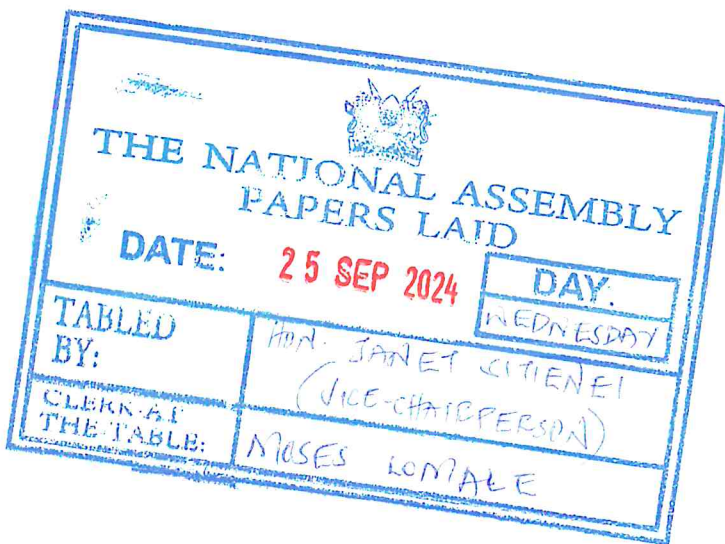 THE NATIONAL ASSEMBLY
PAPERS LAID
DATE: 25 SEP 2024
DAY.
WEDNESDAY
TABLED
BY:
HON. JANET SITIENEI
(VICE-CHAIRPERSON)
CLERK AT
THE TABLE:
MOSES LOMALE